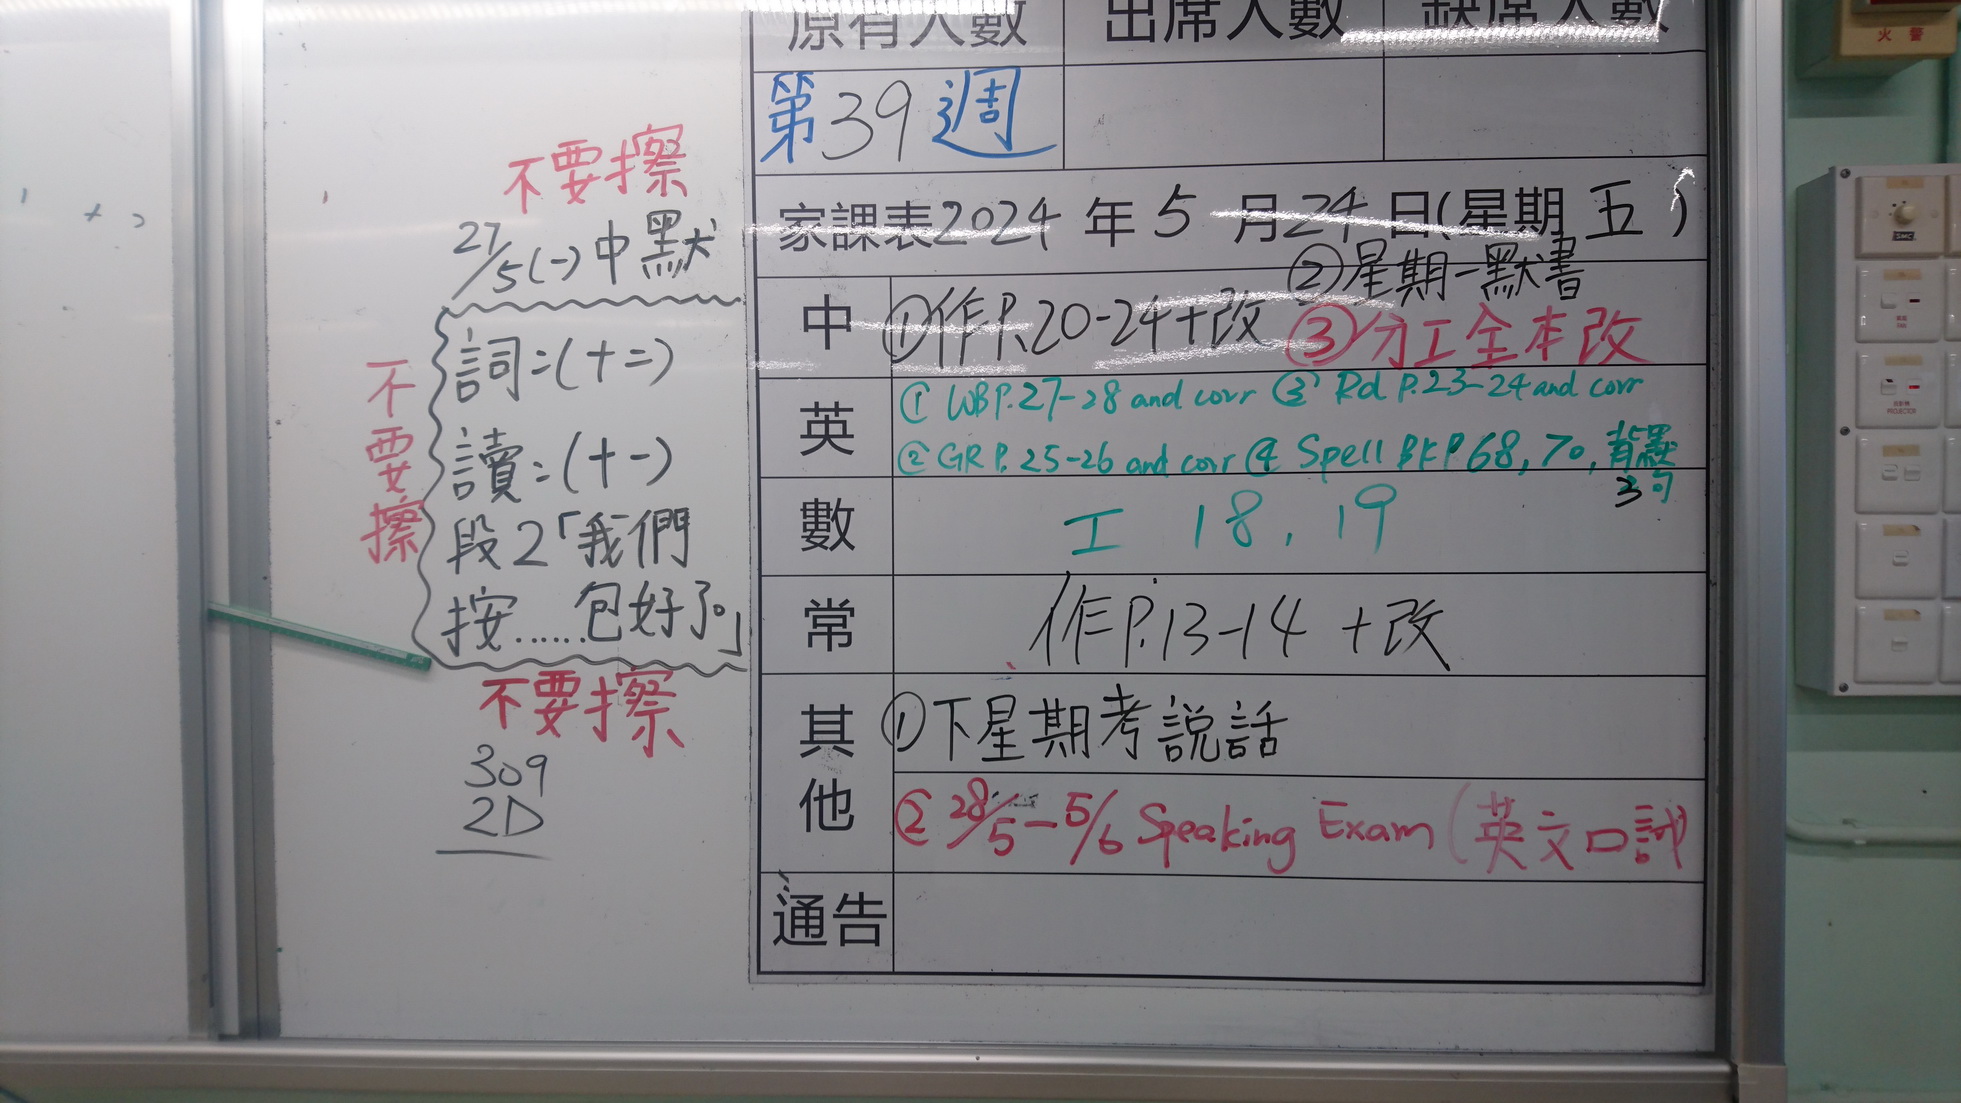 原有人數 出席人數 缺席人數
第39週
家課表2024年5月24日(星期五)
中 ①作P.20-24+改 ②星期一默書
③分工全本改
英 ① WB P.27-28 and corr ③ Rd P.23-24 and corr
② GR P.25-26 and corr ④ Spell BK P68, 70, 背默
3句
數 工 18, 19
常 作P.13-14 +改
其他 ①下星期考說話
② 28/5-5/6 Speaking Exam (英文口試)
通告
不要擦
27/5(一)中默
詞:(十二)
讀:(十一)
段2「我們
按……包好了。」
不要擦
不要擦
309
2D
火警